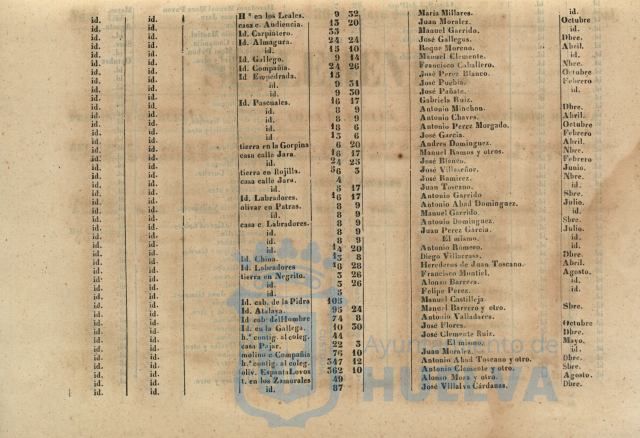 id. id. Hª en los Leales. 9 32 María Millares. id.
id. id. casa c. Audiencia. 15 20 Juan Moralez. Octubre
id. id. Id. Carpintero. 33 Manuel Garrido. id.
id. id. Id. Almagura. 24 24 José Gallegos. Dbre.
id. id. id. 15 10 Roque Moreno. Abril.
id. id. Id. Gallego. 9 14 Manuel Clemente. id.
id. id. Id. Compañia. 24 26 Francisco Caballero. Nbre.
id. id. Id Empedrada. 15 José Perez Blanco. Octubre
id. id. id. 9 31 José Puebla. Febrero
id. id. id. 9 30 José Pañate. id.
id. id. Id. Pascuales. 16 17 Gabriela Ruiz.
id. id. id. 8 9 Antonio Minchon. Dbre.
id. id. id. 8 9 Antonio Chaves. Abril.
id. id. id. 18 6 Antonio Perez Morgado. Octubre
id. id. id. 15 6 José García. Febrero
id. id. tierra en la Gorpina 6 20 Andres Dominguez. Abril.
id. id. casa calle Jara. 16 17 Manuel Ramos y otros. Nbre.
id. id. id. 24 25 José Blanco. Febrero
id. id. tierra en Rojilla. 56 3 José Villaseñor. Junio.
id. id. casa calle Jara. 4 José Ramirez. Nbre.
id. id. id. 5 17 Juan Toscano. id.
id. id. Id. Labradores. 16 17 Antonio Garrido Sbre.
id. id. olivar en Patras. 8 9 Antonio Abad Dominguez. Julio.
id. id. id. 8 9 Manuel Garrido. id.
id. id. casa c. Labradores. 8 9 Antonio Dominguez. Sbre.
id. id. id. 8 9 Juan Perez Garcia. Julio.
id. id. id. 8 9 El mismo. id.
id. id. id. 14 20 Antonio Romero. id.
id. id. Id. China. 13 8 Diego Villarrasa. Dbre.
id. id. Id. Lobradores 18 28 Herederos de Juan Toscano. Abril.
id. id. tierra en Negrito. 3 26 Francisco Montiel. Agosto.
id. id. id. 3 26 Alonso Barrera. id.
id. id. id. 8 Felipe Perez. id.
id. id. Id. cab. de la Pidra 105 Manuel Castilleja.
id. id. Id. Atalaya. 95 24 Manuel Barrero y otro. Sbre.
id. id. Id cab delHombre 74 8 Antonio Valladares. id.
id. id. Id. en la Gallega. 10 30 José Flores. Octubre
id. id. h.ª contig. al coleg. 44 José Clemente Ruiz. Dbre.
id. id. casa Pajar. 22 3 El mismo. Mayo.
id. id. molino c Compañia 76 10 Juan Moralez. id.
id. id. h.ª contig. al coleg. 347 12 Antonio Abad Toscano y otro. Dbre.
id. id. oliv. EspantaLovos 362 10 Antonio Clemente y otro. Sbre.
id. id. t. en los Zamorales 49 Alonso Mora y otro. Agosto.
id. id. id. 87 José Villalva Cárdenas. Dbre.
Ayuntamiento de
HUELVA